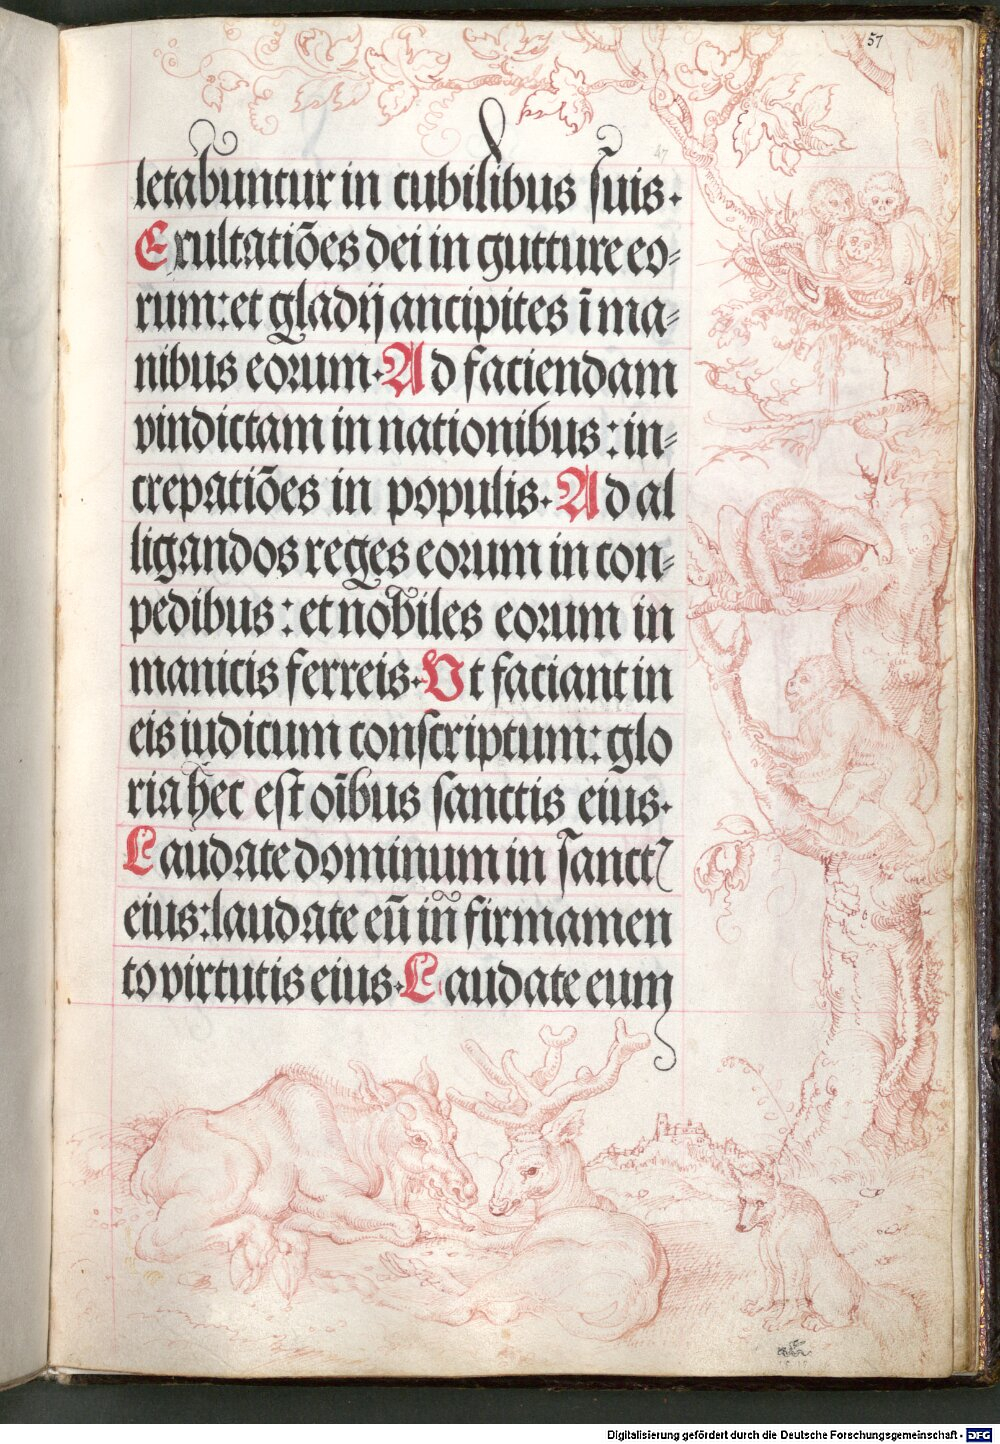 57
47
letabuntur in cubilibus suis.
Exultatiōes dei in gutture eo=
rum: et gladij ancipites ī ma=
nibus eorum. Ad faciendam
vindictam in nationibus: in=
crepatiōes in populis. Ad al
ligandos reges eorum in con=
pedibus: et nobiles eorum in
manicis ferreis. Vt faciant in
eis iudicum conscriptum: glo
ria hec est oībus sanctis eius.
Laudate dominum in sanctꝭ
eius: laudate eū in firmamen
to virtutis eius. Laudate eum
Digitalisierung gefördert durch die Deutsche Forschungsgemeinschaft - DFG